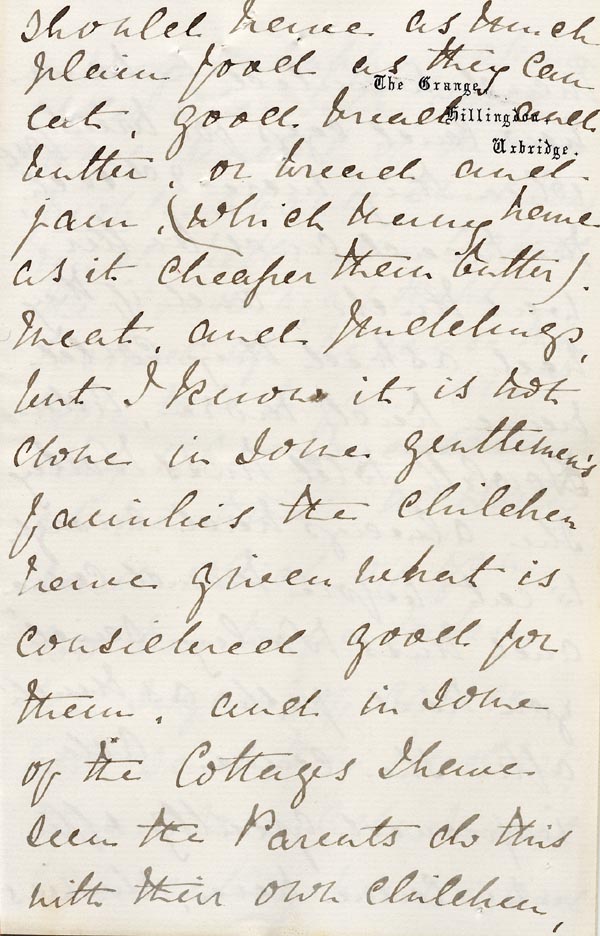 should have as much
plain food as they can
The Grange,
eat, good bread and
Hillingdon
butter, or bread and
Uxbridge.
jam, (which many have
as it cheaper then butter).
meat, and puddings,
but I know it is not
done in some gentlemen's
families the children
have given what is
considered good for
them, and in some
of the Cottages I have
seen the Parents do this
with their own children,